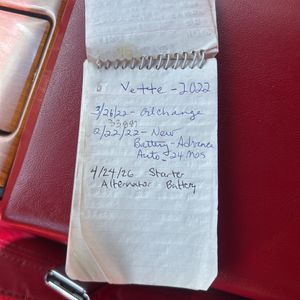 Vette - 2022
3/26/22 - Oil change
2/22/22 - New
Battery - Advance
Auto - 24 Mos
4/24/26 Starter
Alternator Battery